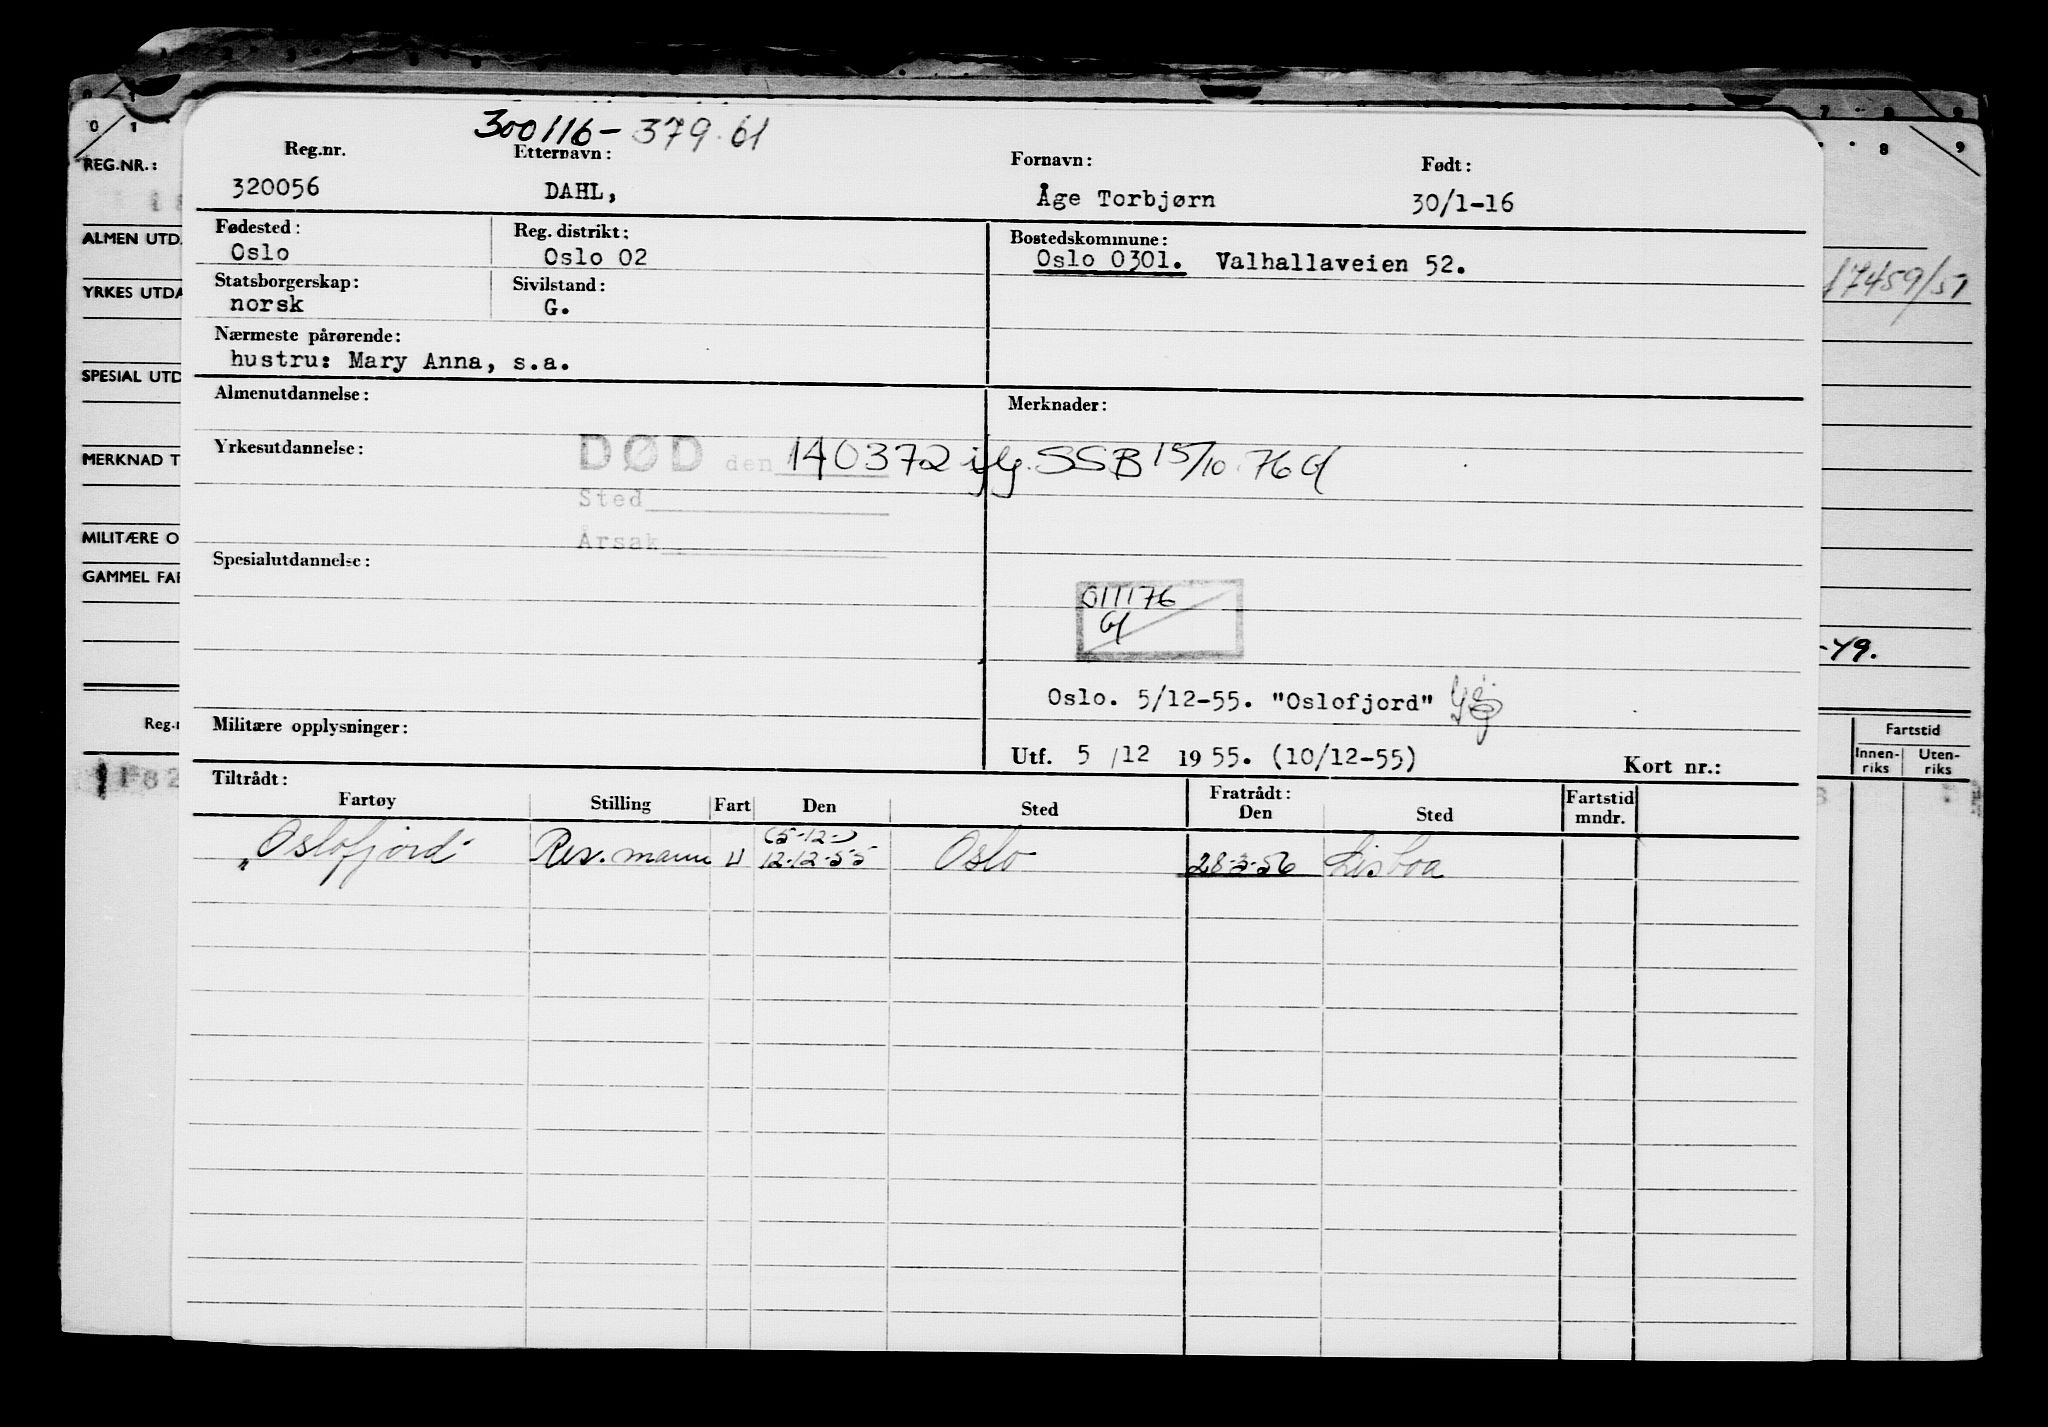 0 1 8 9
300116-379.61
Reg.nr. Etternavn: Fornavn: Født:
320056 DAHL, Åge Torbjørn 30/1-16
Fødested: Reg. distrikt: Bostedskommune:
Oslo Oslo 02 Oslo 0301. Valhallaveien 52.
Statsborgerskap: Sivilstand:
norsk G.
Nærmeste pårørende:
hustru: Mary Anna, s.a.
Almenutdannelse: Merknader:
Yrkesutdannelse: DØD den 140372 iflg. SSB 15/10.76
Sted
Årsak
Spesialutdannelse:
Oslo. 5/12-55. "Oslofjord"
Militære opplysninger:
Utf. 5/12 1955. (10/12-55) Kort nr.:
Tiltrådt: Fratrådt:
Fartøy Stilling Fart Den Sted Den Sted Fartstid mndr.
(5-12-)
"Oslofjord" Res. mann U 12-12-55 Oslo 28-3-56 Lisboa
REG.NR.:
ALMEN UTD.
YRKES UTDA
17459/51
SPESIAL UTD
MERKNAD T
MILITÆRE O
GAMMEL FAR
-49.
Reg.n
Fartstid
Innen-riks Uten-riks